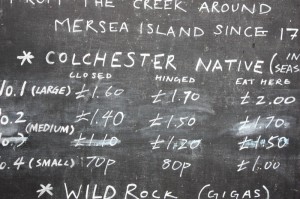 FROM THE CREEK AROUND
MERSEA ISLAND SINCE 17
* COLCHESTER NATIVE (IN
SEAS
CLOSED HINGED EAT HERE
No.1 (LARGE) £1.60 £1.70 £2.00
o.2 (MEDIUM) £1.40 £1.50 £1.70
£1.10 £1.20 £1.50
o.4 (SMALL) 70p 80p £1.00
* WILD ROCK (GIGAS)